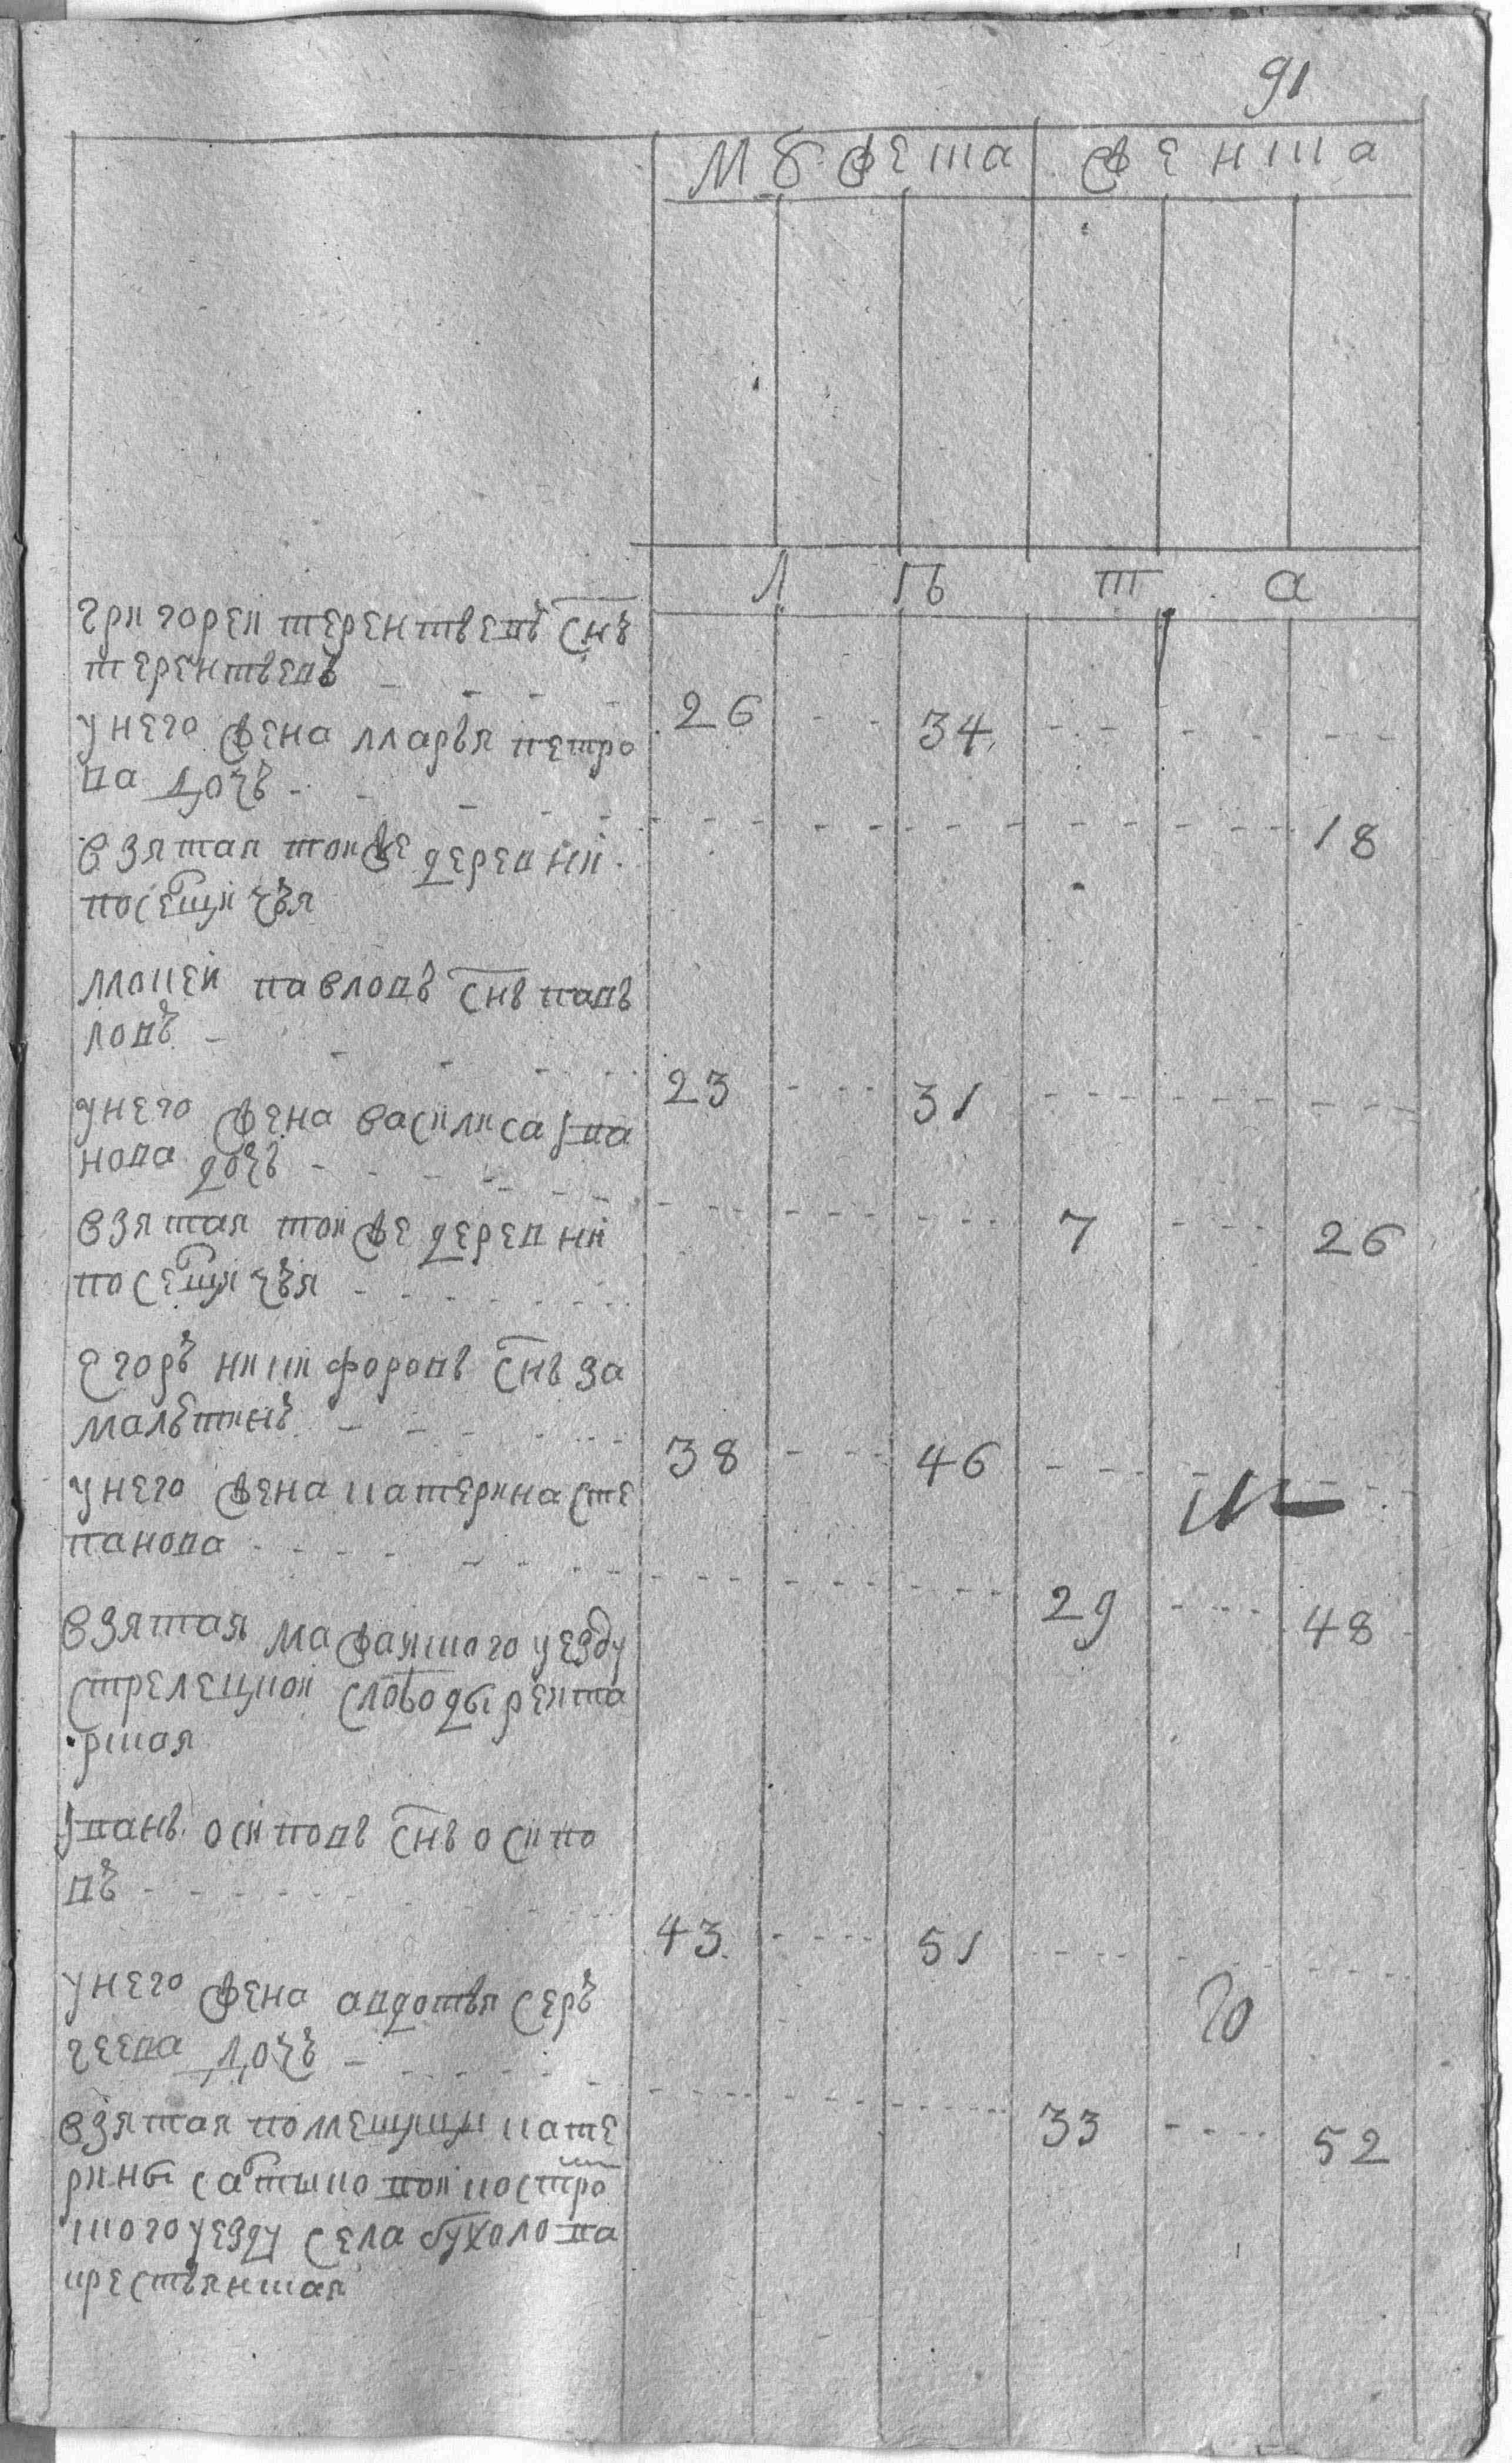 91
Мужеска Женска
Л Ѣ Т А
григореи терентьевъ снъ
терентьевъ - - - -
26 - - 34 - - - - -
у него жена марья петро
ва дочь - - - - -
18
взятая тои же деревни
посетничья
мокей павловъ снъ пав
ловъ - - - -
23 - - - 31 - - - - -
у него жена василиса ива
нова дочь - - - - -
7 - - - 26
взятая тои же деревни
посетничья - - - - -
Егоръ никифоровъ снъ за
малѣтинъ - - - - -
38 - - - 46 - - - - -
у него жена катерина сте
панова - - - - -
29 - - - 48
взятая можайского уезду
стрелецкои слободы реита
рская
Іванъ осиповъ снъ осипо
въ - - - - -
43 - - - 51 - - - - -
у него жена авдотья сер
геева дочь - - - - -
33 - - - 52
взятая помещицы кате
рины костро
мского уезду села бухолова
крестьянская